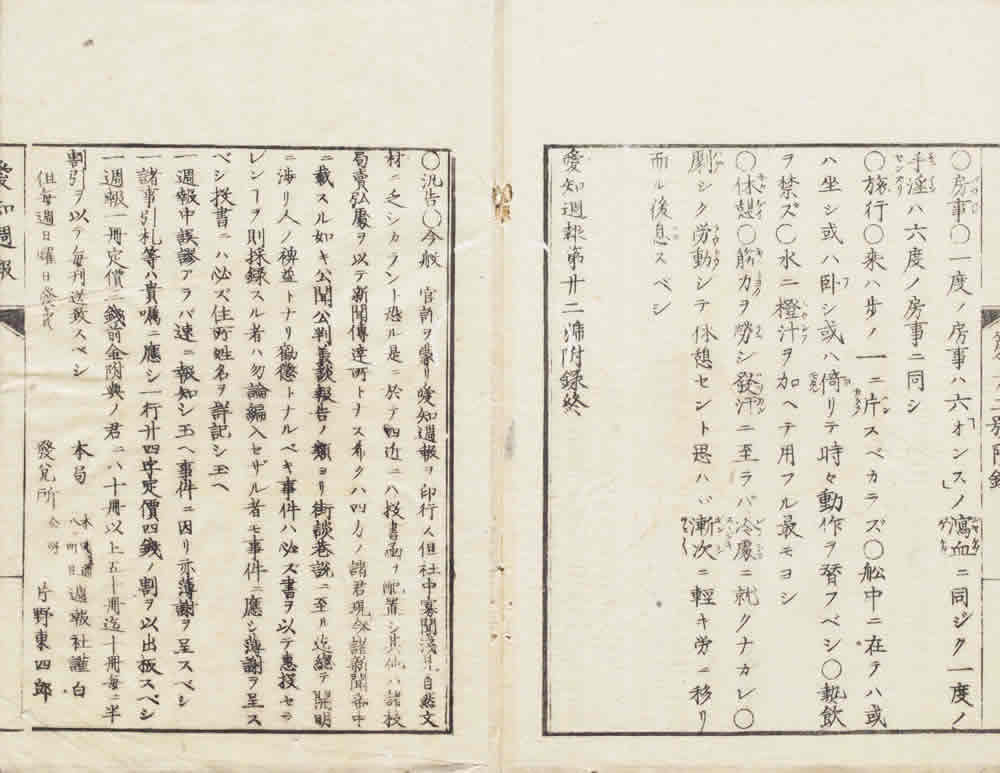 ○房事○一度ノ房事ハ六「オンス」ノ瀉血ニ同ジク一度ノ
手淫ハ六度ノ房事ニ同シ
○旅行○乘ハ歩ノ一ニ片スベカラズ○舩中ニ在テハ或
ハ坐シ或ハ臥シ或ハ倚リテ時々動作ヲ替フベシ○飲
ヲ禁ズ○水ニ橙汁ヲ加ヘテ用フル最モヨシ
○休憩○筋力ヲ勞シ發汗ニ至ラバ冷處ニ就クナカレ○
劇シク労動シテ休憩セント思ハヾ漸次ニ輕キ労ニ移リ
而ル後息スベシ
愛知週報第廿二号附録終
○汎告○今般 官許ヲ蒙リ愛知週報ヲ印行ス但社中寡聞淺見自然文
材ニ乏シカラント恐ル是ニ於テ四辺ニハ投書函ヲ配置シ其他ハ諸校
局賣弘處ヲ以テ新聞傳達所トス希クハ四方ノ諸君現今諸新聞帋中
ニ載スル如キ公聞公判義談報告ノ類ヨリ街談巷説ニ至ル迄總テ開明
ニ渉リ人ノ裨益トナリ勧懲トナルベキ事件ハ必ズ書ヲ以テ惠投セラ
レンヿヲ則採録スル者ハ勿論編入セザル者モ事件ニ應シ薄謝ヲ呈ス
ベシ投書ニハ必ズ住所姓名ヲ詳記シ玉ヘ
一週報中誤謬アラバ速ニ報知シ玉ヘ事件ニ因リ亦薄謝ヲ呈スベシ
一諸事引札等ハ貴嘱ニ應シ一行廿四字定價四錢ノ割ヲ以出板スベシ
一週報一冊定價二錢前金附與ノ君ニハ十冊以上五十冊迄十冊毎ニ半
割引ヲ以テ毎刊送致スベシ
本局 週報社謹白
但毎週日曜日發兌
發兌所 片野東四郎
愛知週報